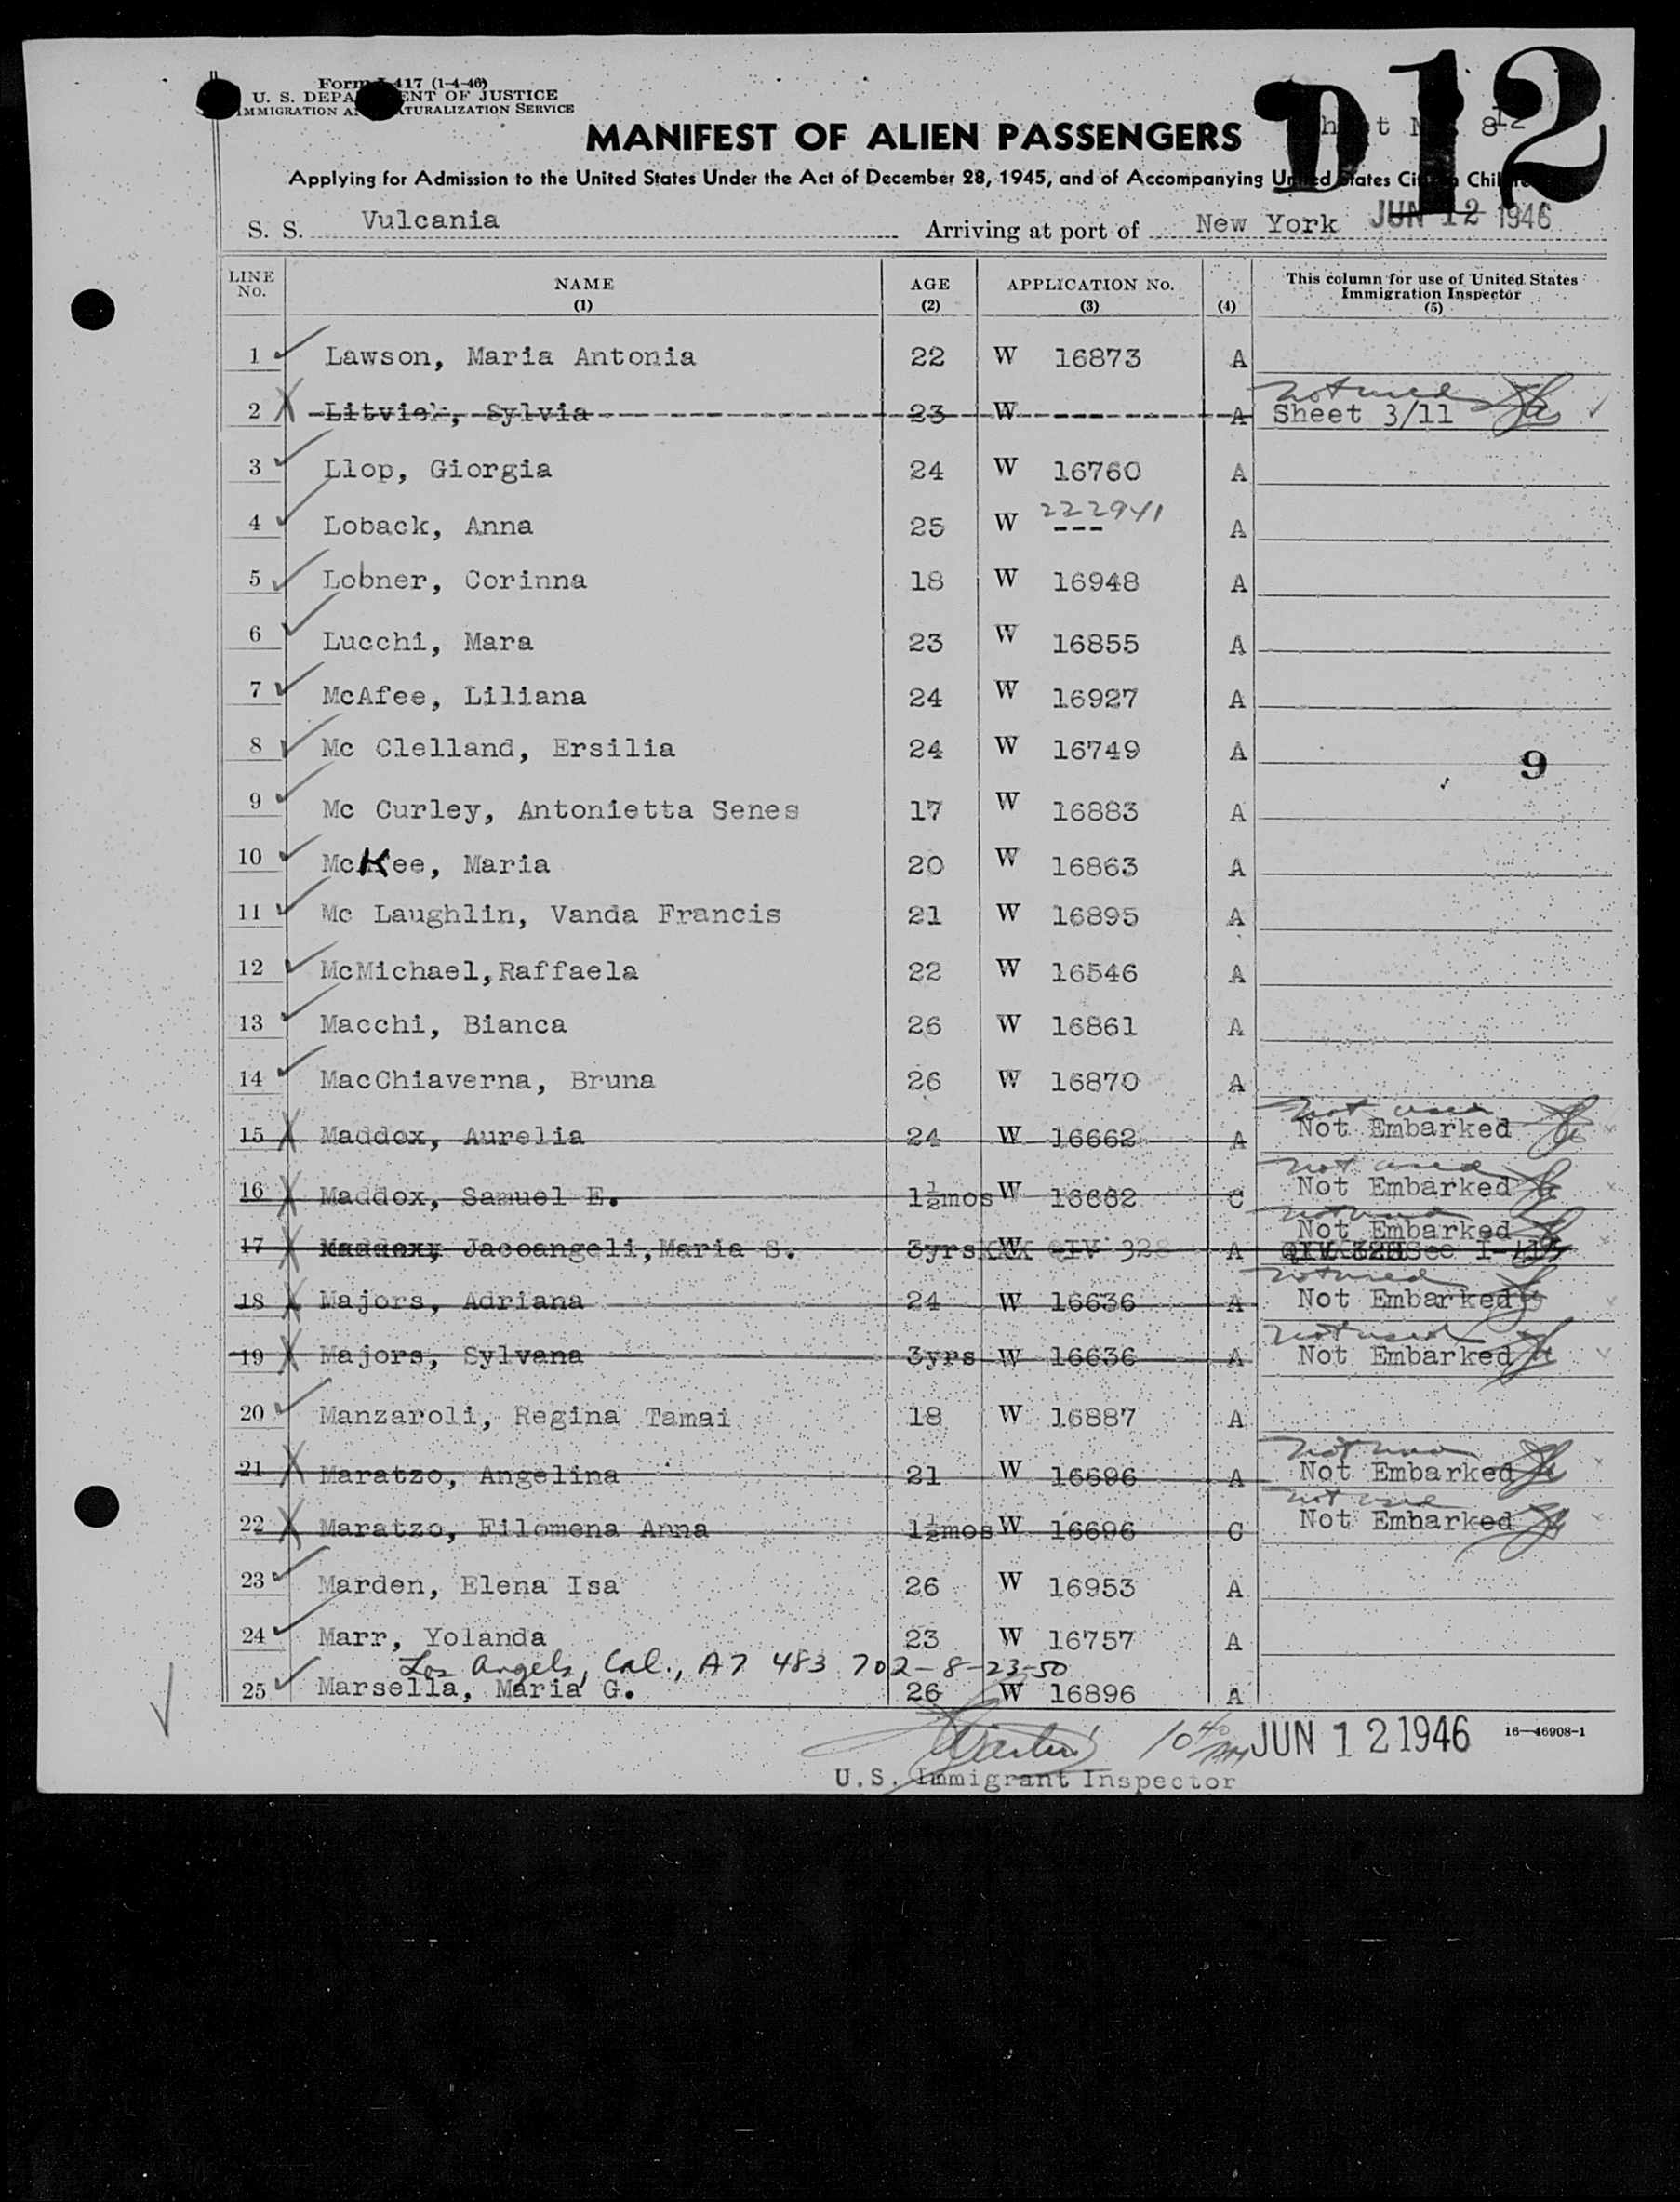 Form I-417 (1-4-46)
U. S. DEPARTMENT OF JUSTICE
IMMIGRATION AND NATURALIZATION SERVICE
D12
MANIFEST OF ALIEN PASSENGERS
Sheet No. 8 12
Applying for Admission to the United States Under the Act of December 28, 1945, and of Accompanying United States Citizen Children
S. S. Vulcania Arriving at port of New York JUN 12 1946
LINE No. NAME (1) AGE (2) APPLICATION No. (3) (4) This column for use of United States Immigration Inspector (5)
1 Lawson, Maria Antonia 22 W 16873 A
not used
2 Litvick, Sylvia 23 W A Sheet 3/11
3 Llop, Giorgia 24 W 16760 A
4 Loback, Anna 25 W --- 222941 A
5 Lobner, Corinna 18 W 16948 A
6 Lucchi, Mara 23 W 16855 A
7 McAfee, Liliana 24 W 16927 A
8 Mc Clelland, Ersilia 24 W 16749 A
9
9 Mc Curley, Antonietta Senes 17 W 16883 A
10 McKee, Maria 20 W 16863 A
11 Mc Laughlin, Vanda Francis 21 W 16895 A
12 McMichael,Raffaela 22 W 16546 A
13 Macchi, Bianca 26 W 16861 A
14 MacChiaverna, Bruna 26 W 16870 A
not used
15 Maddox, Aurelia 24 W 16662 A Not Embarked
not used
16 Maddox, Samuel E. 1½mos W 16662 C Not Embarked
not used
Not Embarked
17 Maddoxy Jacoangeli,Maria S. 3yrs W QIV 328 A QIV 328 See I-
not used
18 Majors, Adriana 24 W 16636 A Not Embarked
not used
19 Majors, Sylvana 3yrs W 16636 A Not Embarked
20 Manzaroli, Regina Tamai 18 W 16887 A
not used
21 Maratzo, Angelina 21 W 16696 A Not Embarked
not used
22 Maratzo, Filomena Anna 1½mos W 16696 C Not Embarked
23 Marden, Elena Isa 26 W 16953 A
24 Marr, Yolanda 23 W 16757 A
Los Angels, Cal., A7 483 702-8-23-50
25 Marsella, Maria G. 26 W 16896 A
10 40 AM JUN 12 1946 16—46908-1
U.S. Immigrant Inspector